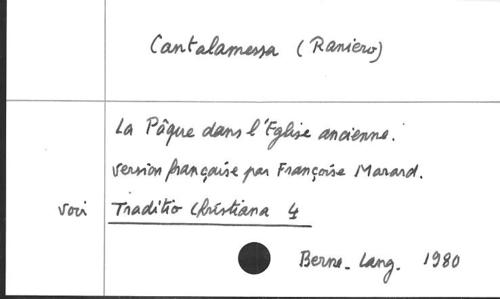 Cantalamessa (Raniero)
La Pâque dans l'Eglise ancienne.
version française par Françoise Morard.
voir Traditio Christiana 4
Berne - Lang - 1980